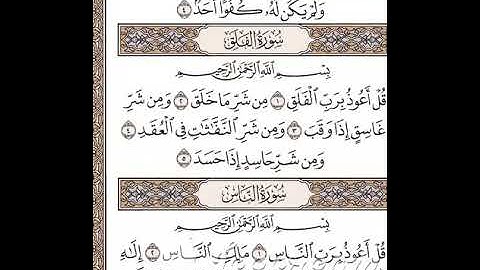 وَلَمْ يَكُن لَّهُۥ كُفُوًا أَحَدٌۢ ٤
سُورَةُ الفَلَقِ
بِسْمِ ٱللَّهِ ٱلرَّحْمَٰنِ ٱلرَّحِيمِ
قُلْ أَعُوذُ بِرَبِّ ٱلْفَلَقِ ١ مِن شَرِّ مَا خَلَقَ ٢ وَمِن شَرِّ
غَاسِقٍ إِذَا وَقَبَ ٣ وَمِن شَرِّ ٱلنَّفَّٰثَٰتِ فِى ٱلْعُقَدِ ٤
وَمِن شَرِّ حَاسِدٍ إِذَا حَسَدَ ٥
سُورَةُ النَّاسِ
بِسْمِ ٱللَّهِ ٱلرَّحْمَٰنِ ٱلرَّحِيمِ
قُلْ أَعُوذُ بِرَبِّ ٱلنَّاسِ ١ مَلِكِ ٱلنَّاسِ ٢ إِلَٰهِ